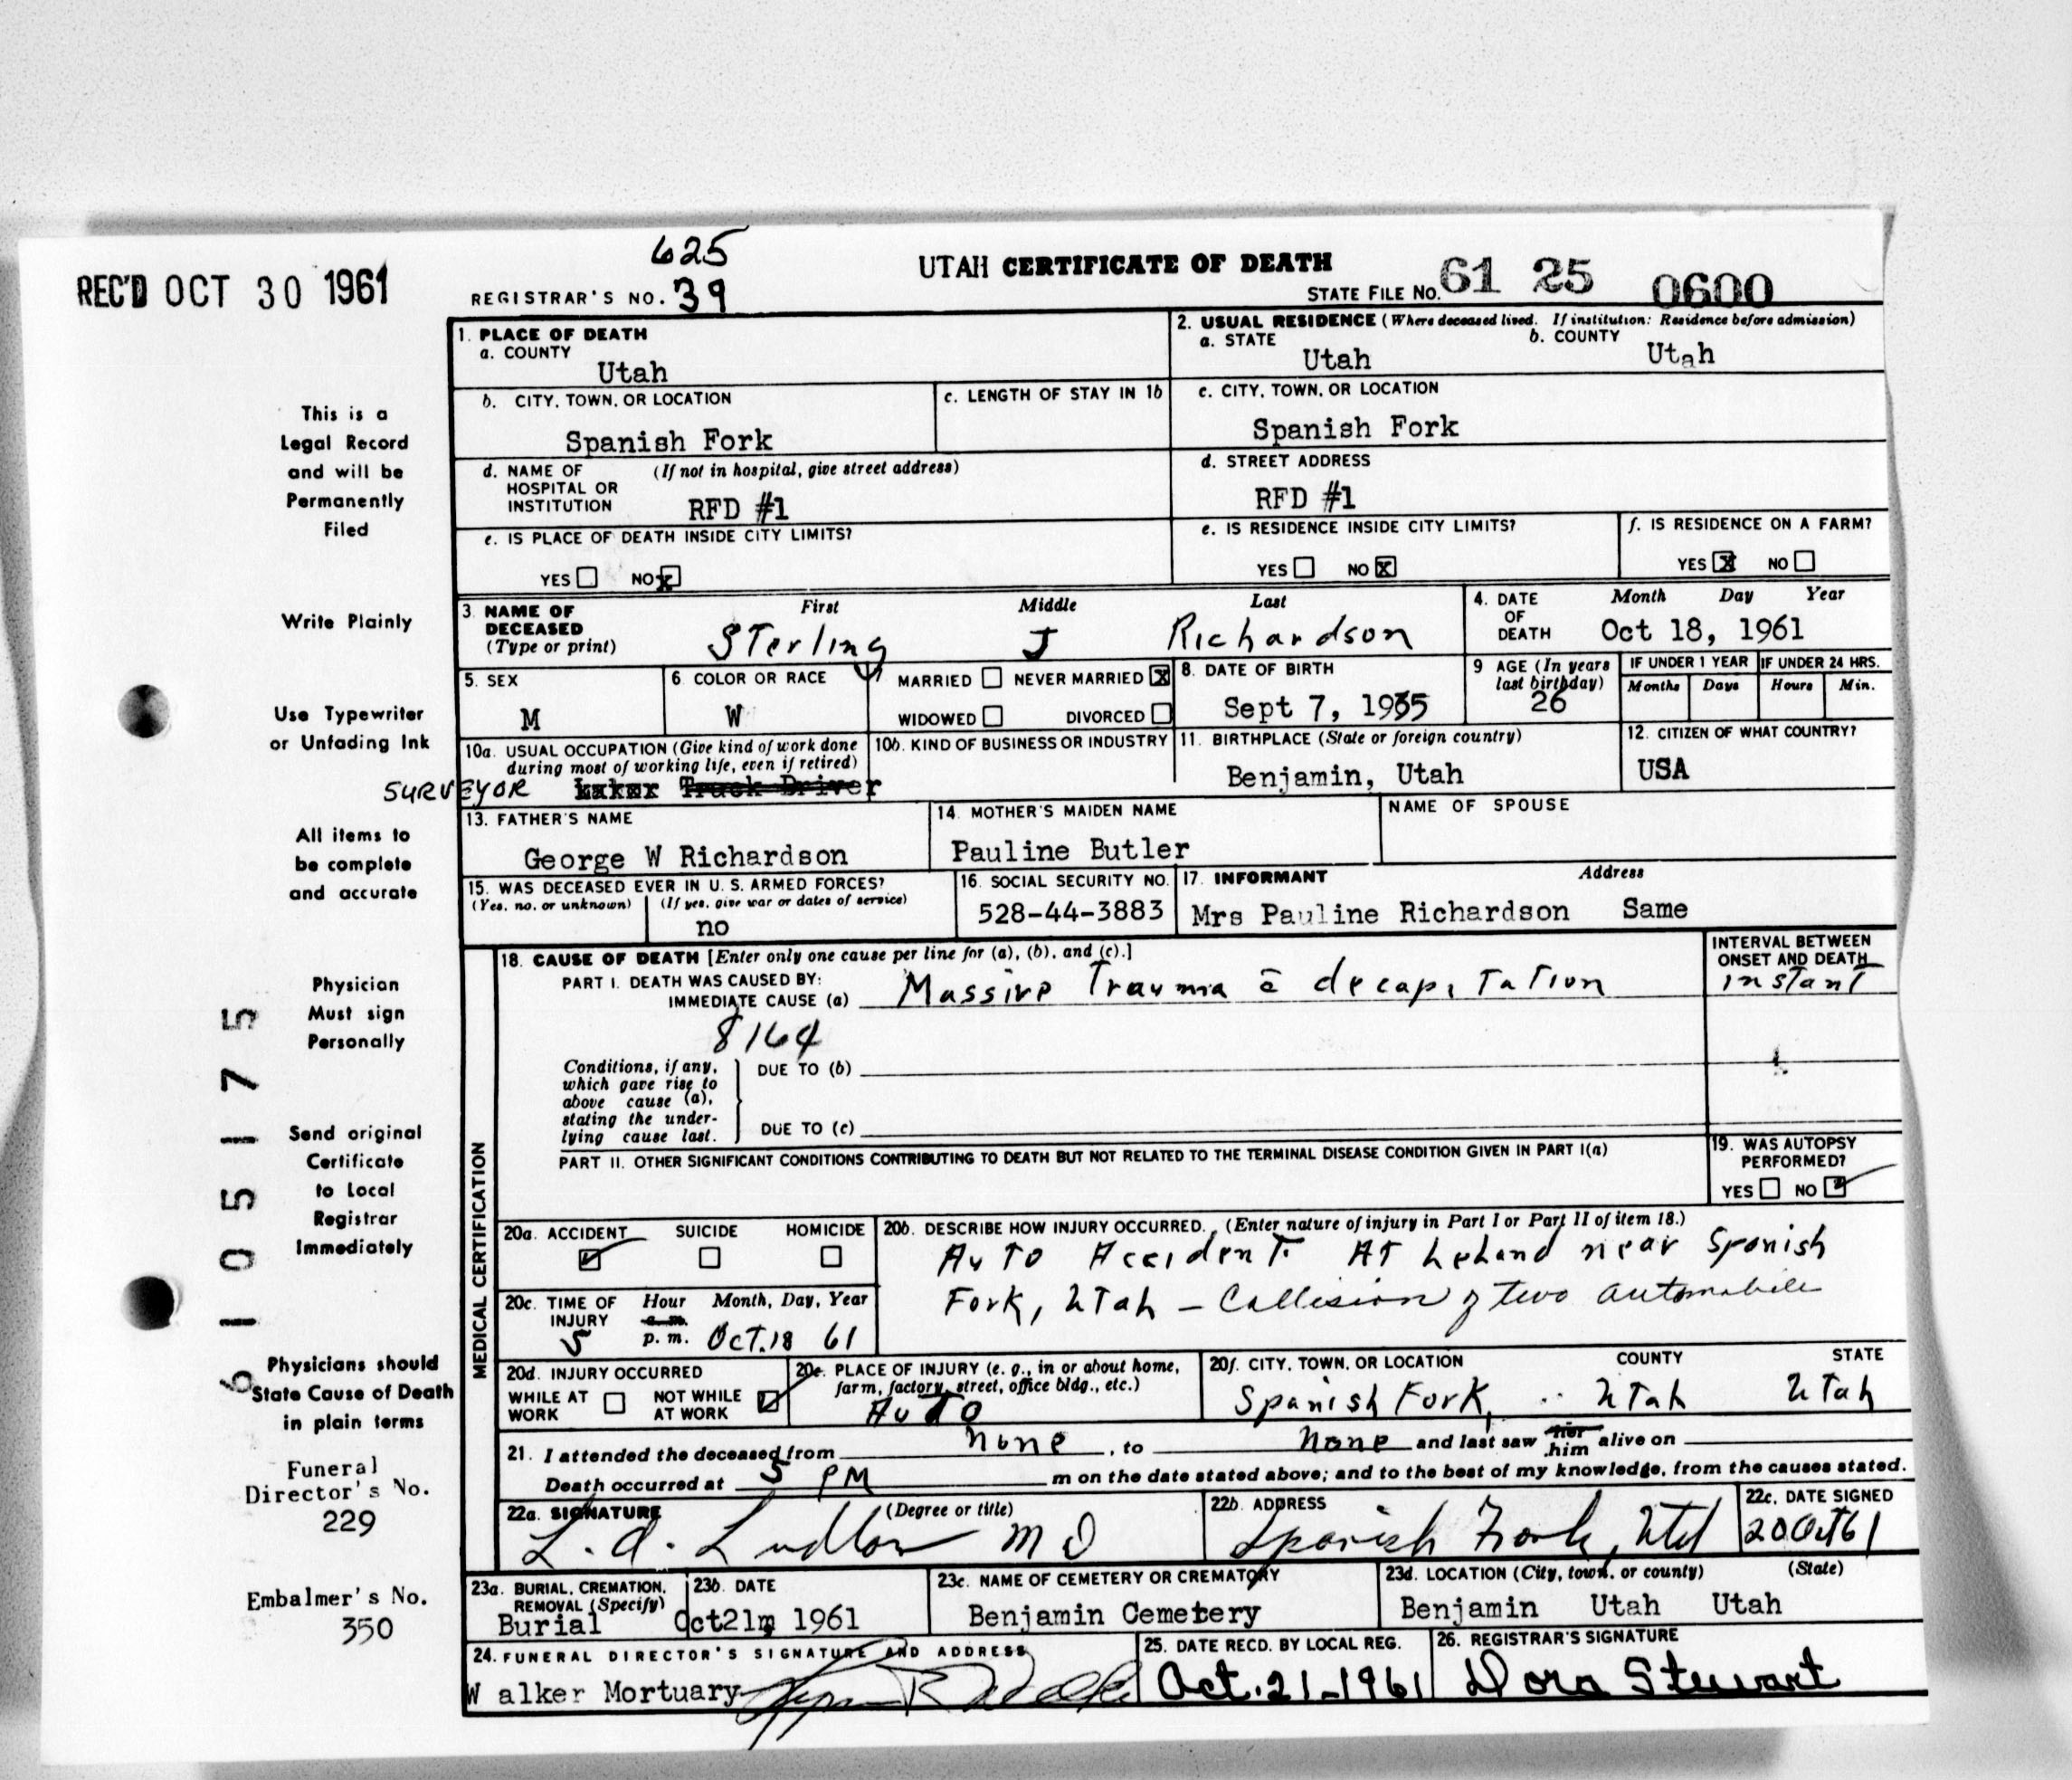 625
REC'D OCT 30 1961
REGISTRAR'S NO. 39
UTAH CERTIFICATE OF DEATH
STATE FILE NO. 61 25 0600
This is a
Legal Record
and will be
Permanently
Filed
Write Plainly
Use Typewriter
or Unfading Ink
All items to
be complete
and accurate
Physician
Must sign
Personally
Send original
Certificate
to Local
Registrar
Immediately
Physicians should
State Cause of Death
in plain terms
Funeral
Director's No.
229
Embalmer's No.
350
6105175
1. PLACE OF DEATH
a. COUNTY
Utah
b. CITY, TOWN, OR LOCATION
Spanish Fork
c. LENGTH OF STAY IN 1b
d. NAME OF HOSPITAL OR INSTITUTION (If not in hospital, give street address)
RFD #1
e. IS PLACE OF DEATH INSIDE CITY LIMITS?
YES NO x
2. USUAL RESIDENCE (Where deceased lived. If institution: Residence before admission)
a. STATE
Utah
b. COUNTY
Utah
c. CITY, TOWN, OR LOCATION
Spanish Fork
d. STREET ADDRESS
RFD #1
e. IS RESIDENCE INSIDE CITY LIMITS?
YES NO X
f. IS RESIDENCE ON A FARM?
YES X NO
3. NAME OF DECEASED (Type or print)
First Middle Last
Sterling J Richardson
4. DATE OF DEATH Month Day Year
Oct 18, 1961
5. SEX
M
6 COLOR OR RACE
W
7 MARRIED NEVER MARRIED X
WIDOWED DIVORCED
8. DATE OF BIRTH
Sept 7, 1935
9 AGE (In years last birthday)
26
IF UNDER 1 YEAR IF UNDER 24 HRS.
Months Days Hours Min.
10a. USUAL OCCUPATION (Give kind of work done during most of working life, even if retired)
SURVEYOR Truck Driver
10b. KIND OF BUSINESS OR INDUSTRY
11. BIRTHPLACE (State or foreign country)
Benjamin, Utah
12. CITIZEN OF WHAT COUNTRY?
USA
13. FATHER'S NAME
George W Richardson
14. MOTHER'S MAIDEN NAME
Pauline Butler
NAME OF SPOUSE
15. WAS DECEASED EVER IN U. S. ARMED FORCES?
(Yes, no, or unknown) (If yes, give war or dates of service)
no
16. SOCIAL SECURITY NO.
528-44-3883
17. INFORMANT Address
Mrs Pauline Richardson Same
MEDICAL CERTIFICATION
18. CAUSE OF DEATH [Enter only one cause per line for (a), (b), and (c).]
PART I. DEATH WAS CAUSED BY:
IMMEDIATE CAUSE (a) Massive Trauma c̄ decapitation
8164
INTERVAL BETWEEN ONSET AND DEATH
instant
Conditions, if any, which gave rise to above cause (a), stating the underlying cause last.
DUE TO (b)
DUE TO (c)
PART II. OTHER SIGNIFICANT CONDITIONS CONTRIBUTING TO DEATH BUT NOT RELATED TO THE TERMINAL DISEASE CONDITION GIVEN IN PART I(a)
19. WAS AUTOPSY PERFORMED?
YES NO ✓
20a. ACCIDENT ✓ SUICIDE HOMICIDE
20b. DESCRIBE HOW INJURY OCCURRED. (Enter nature of injury in Part I or Part II of item 18.)
Auto Accident. At near Spanish
Fork, Utah — Collision of two automobile
20c. TIME OF INJURY Hour Month, Day, Year
a.m.
5 p. m. Oct. 18 61
20d. INJURY OCCURRED
WHILE AT WORK NOT WHILE AT WORK ✓
20e. PLACE OF INJURY (e. g., in or about home, farm, factory, street, office bldg., etc.)
Auto
20f. CITY, TOWN, OR LOCATION COUNTY STATE
Spanish Fork, Utah Utah
21. I attended the deceased from none, to none and last saw her him alive on
Death occurred at 5 PM m on the date stated above; and to the best of my knowledge, from the causes stated.
22a. SIGNATURE (Degree or title)
L. D. Ludlow M D
22b. ADDRESS
Spanish Fork, Utah
22c. DATE SIGNED
20 Oct 61
23a. BURIAL, CREMATION, REMOVAL (Specify)
Burial
23b. DATE
Oct21, 1961
23c. NAME OF CEMETERY OR CREMATORY
Benjamin Cemetery
23d. LOCATION (City, town, or county) (State)
Benjamin Utah Utah
24. FUNERAL DIRECTOR'S SIGNATURE AND ADDRESS
Walker Mortuary
25. DATE RECD. BY LOCAL REG.
Oct. 21-1961
26. REGISTRAR'S SIGNATURE
Dora Stewart